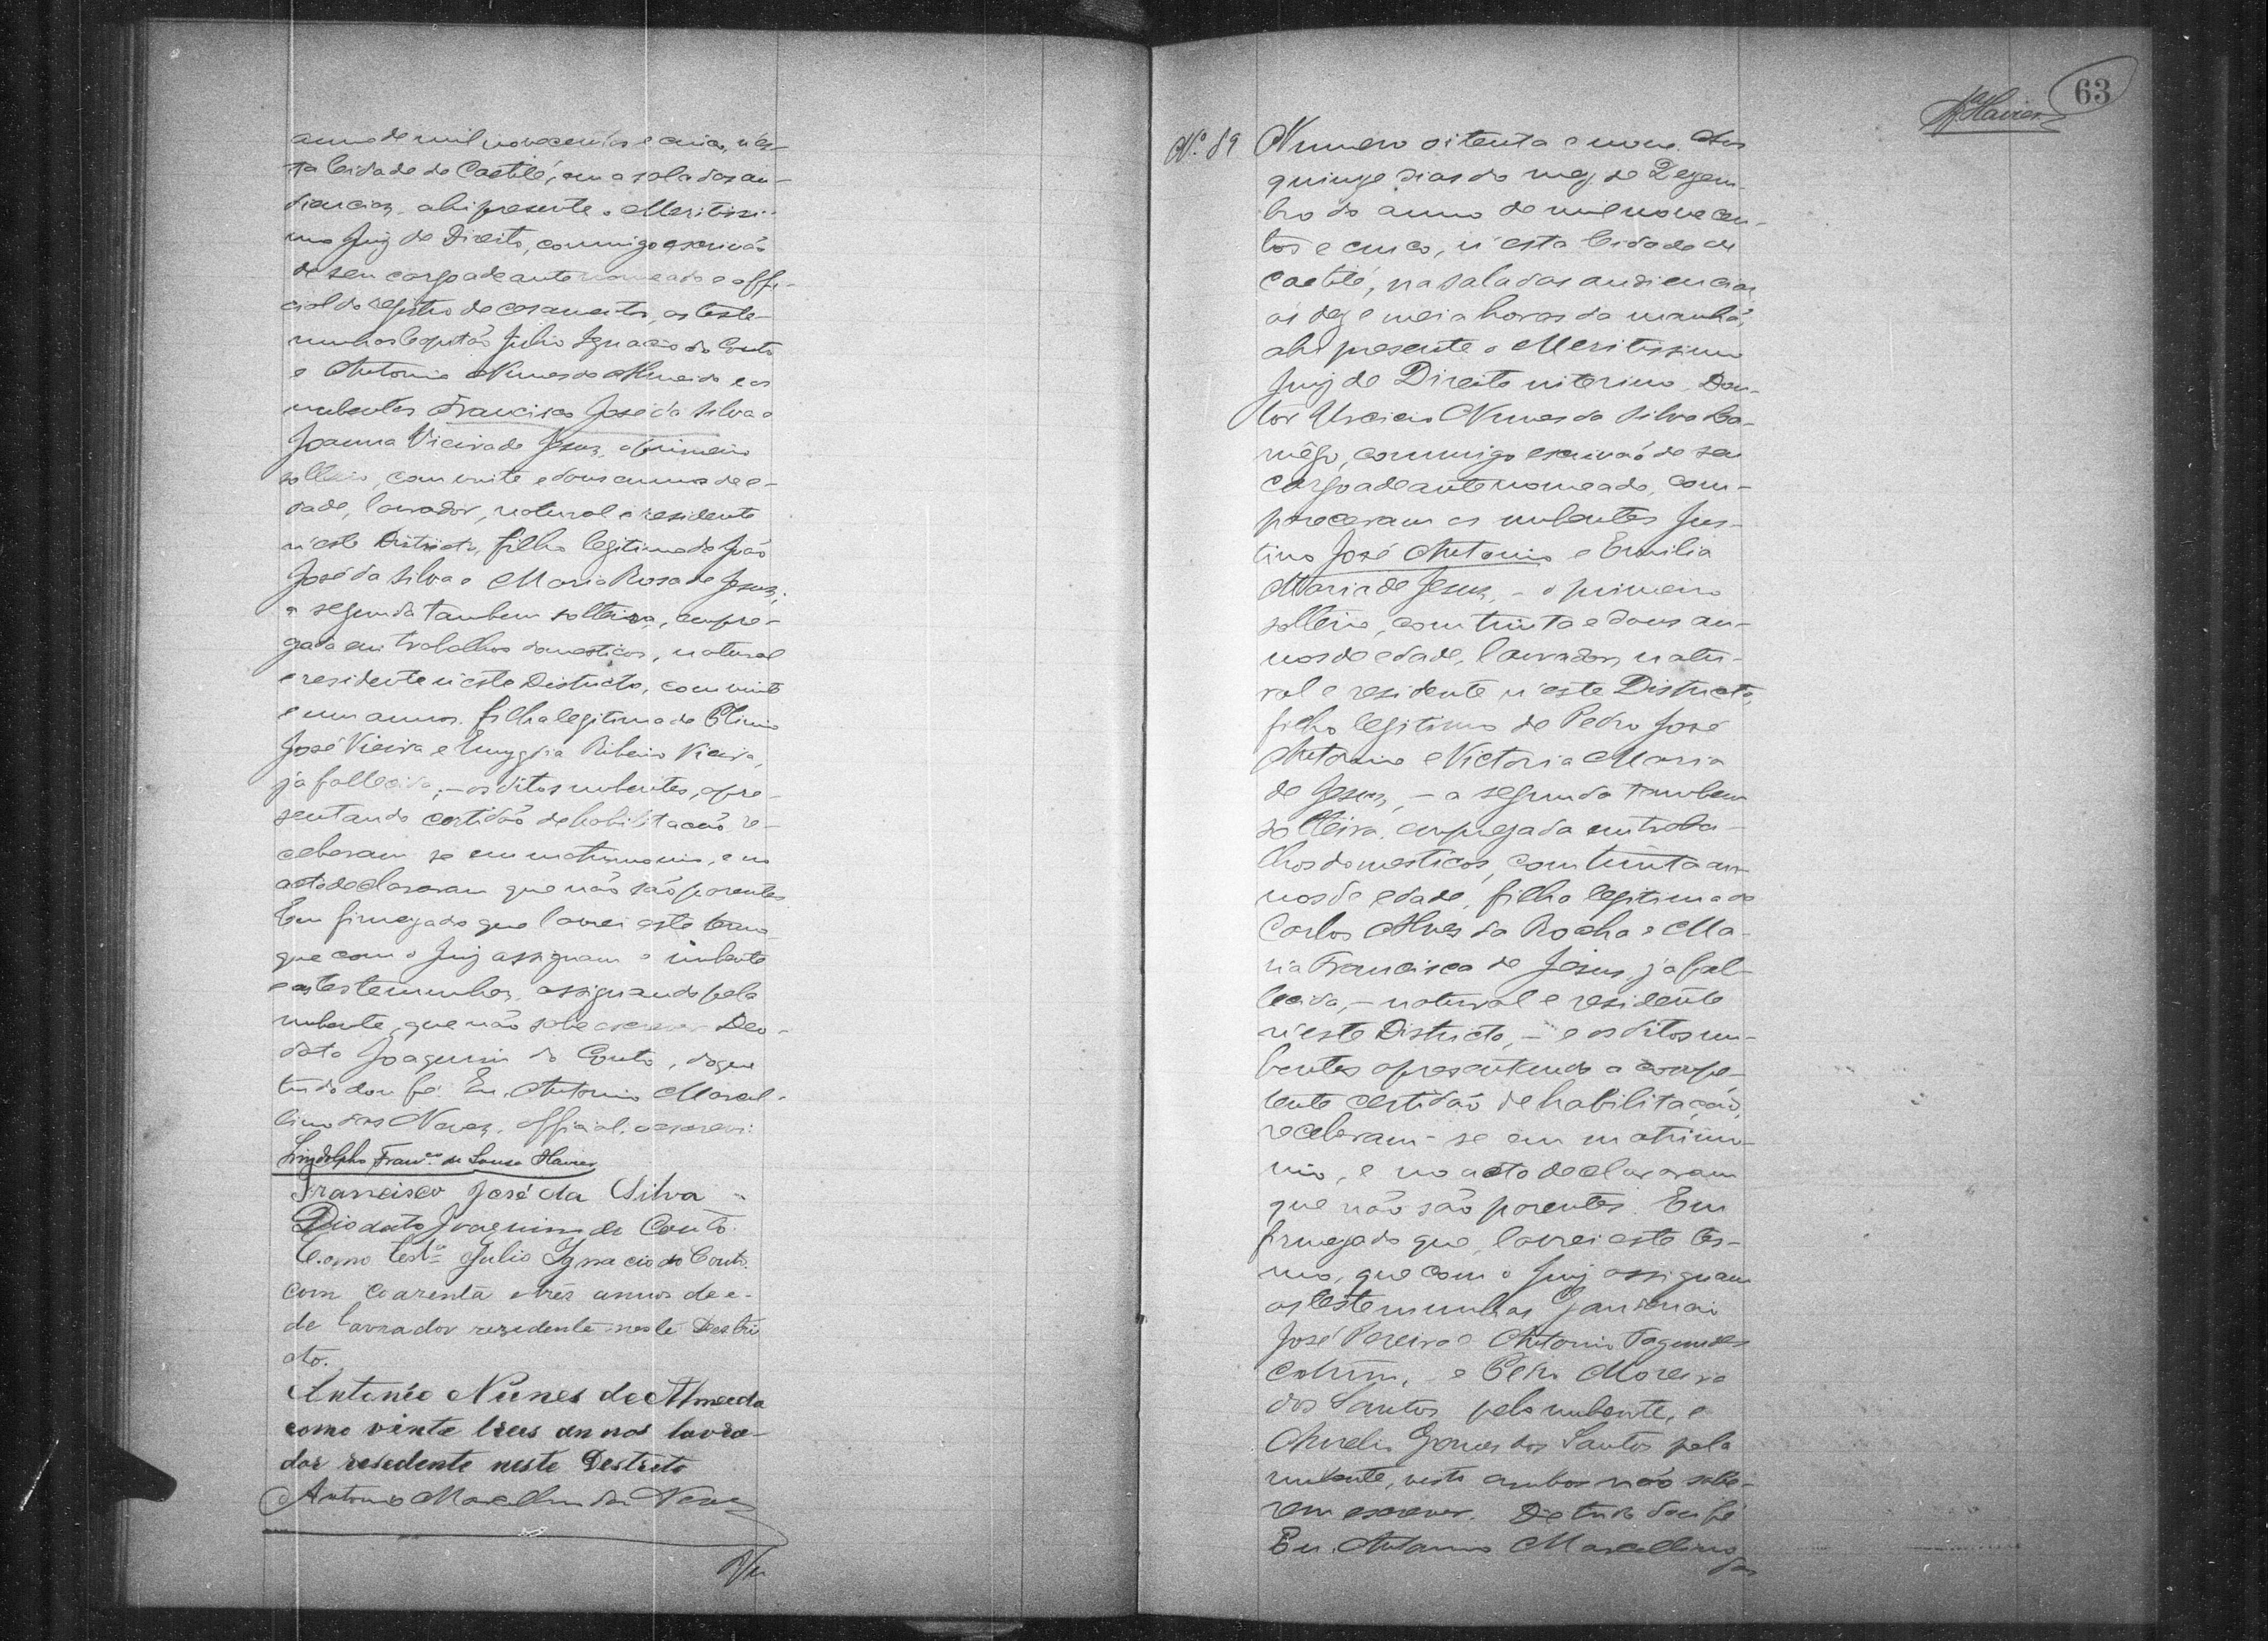 anno de mil novecentos e cinco, n'es-
ta Cidade de Caetité, em a sala das au-
diencias, ahi presente o Meritissi-
mo Juiz de Direito, commigo escrivão
de seu cargo adeante nomeado e offi-
cial do registro de casamentos, as teste-
munhas Capitão Julio Ignacio do Couto
e Antonio Nunes de Almeida e os
nubentes Francisco José da Silva e
Joanna Vieira de Jesus, o primeiro
solteiro, com vinte e dous annos de e-
dade, lavrador, natural e residente
n'este Districto, filho legitimo de João
José da Silva e Maria Rosa de Jesus;
a segunda tambem solteira, empre-
gada em trabalhos domesticos, natural
e residente n'este Districto, com vinte
e um annos, filha legitima de
José Vieira e Ribeiro Vieira,
já fallecida; - os ditos nubentes, apre-
sentando certidão de habilitação re-
ceberam se em matrimonio, e no
acto declararam que não são parentes.
Em firmeza do que lavrei este termo
que com o Juiz assignam o nubente
e as testemunhas, assignando pela
nubente, que não sabe escrever Deo-
dato Joaquim do Couto, do que
tudo dou fé. Eu, Antonio Marcel-
lino das Neves, official, o escrevi:
Lindolpho Franco. de Sousa Xavier
Francisco José da Silva
Diodato Joaquim do Couto.
Como testa. Julio Ignacio do Couto.
com coarenta e três annos de e-
de lavrador rezidente neste Destri
cto.
Antonio Nunes de Almeida
como vinte treis annos lavra-
dor resedente neste Destrito
Antonio Marcellino das Neves
63
Xavier
N.º 89 Numero oitenta e nove. Aos
quinze dias do mez de Dezem-
bro do anno de mil novecen-
tos e cinco, n'esta Cidade de
Caetité, na sala das audiencias
ás dez e meia horas da manhã,
ahi presente o Meritissimo
Juiz de Direito interino, Dou-
tor Nunes da Silva
commigo escrivão de seu
cargo adeante nomeado, com-
pareceram os nubentes Jus-
tino José Antonio e Emilia
Maria de Jesus, - o primeiro
solteiro, com trinta e dous an-
nos de edade, lavrador, natu-
ral e residente n'este Districto,
filho legitimo de Pedro José
Antonio e Victoria Maria
de Jesus, - a segunda tambem
solteira, empregada em traba-
lhos domesticos, com trinta an-
nos de edade, filha legitima de
Carlos Alves da Rocha e Ma-
ria Francisca de Jesus, já fal-
lecida, - natural e residente
n'este Districto, - e os ditos nu-
bentes apresentando a compe-
tente certidão de habilitação,
receberam-se em matrimo-
nio, e no acto declararam
que não são parentes. Em
firmeza do que, lavrei este ter-
mo, que com o Juiz assignam
as testemunhas Gaudencio
José Pereira e Antonio Fagundes
Cotrim, e Pedro Moreira
dos Santos pelo nubente, e
Aurelio Gomes dos Santos pela
nubente, visto ambos não sabe-
rem escrever. De tudo dou fé
Eu, Antonio Marcellino
das